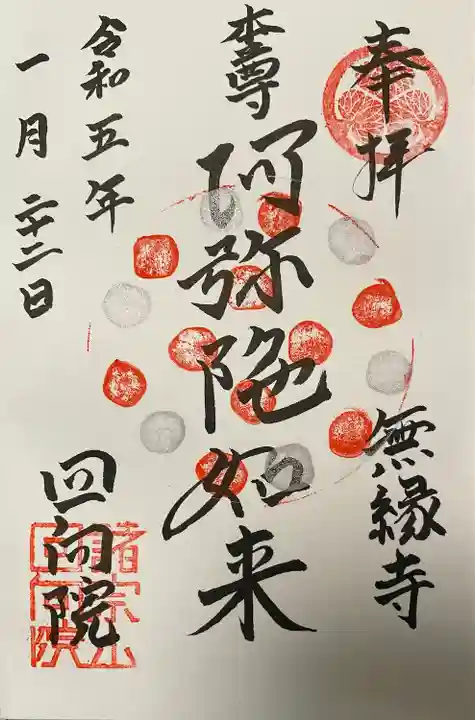 奉拝
無縁寺
本尊
阿弥陀如来
令和五年
一月二十二日
回向院
諸宗山
回向院